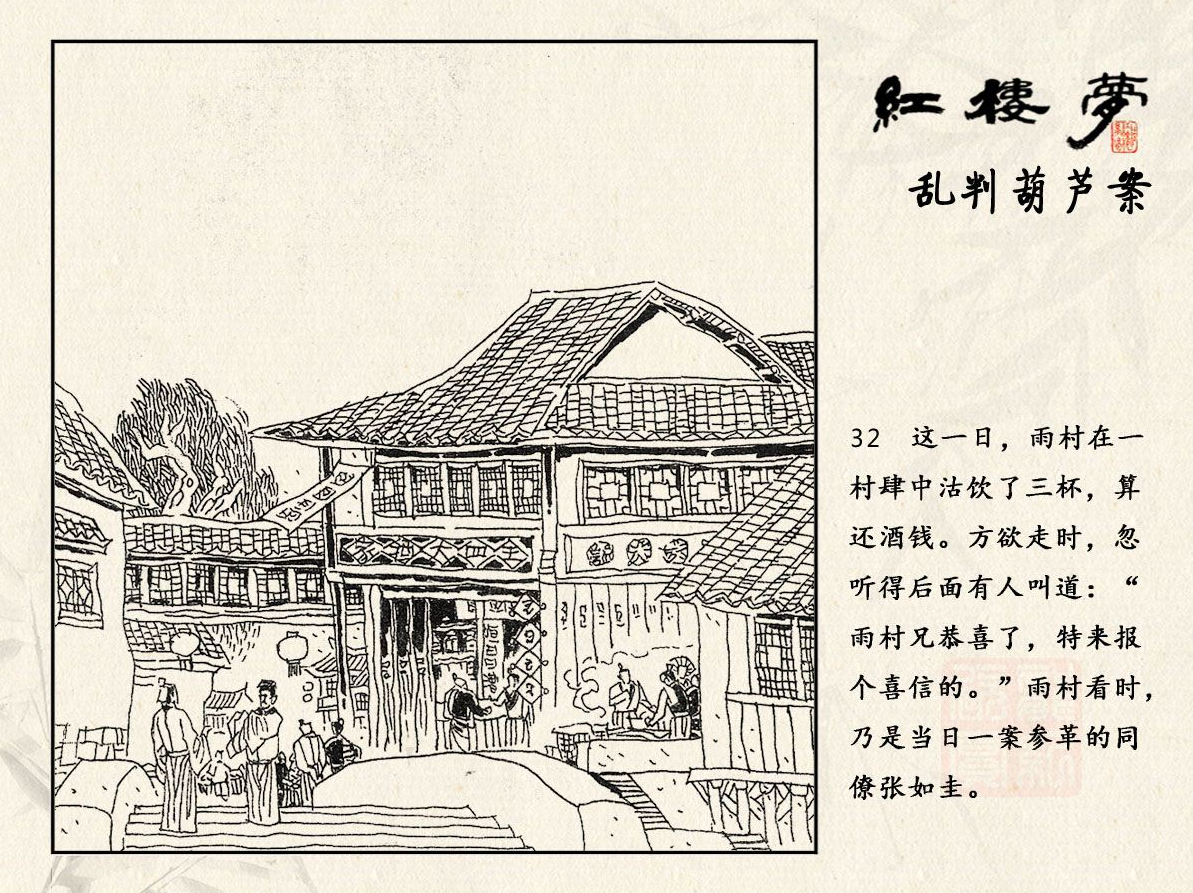 紅樓夢
乱判葫芦案
32 这一日，雨村在一
村肆中沽饮了三杯，算
还酒钱。方欲走时，忽
听得后面有人叫道：“
雨村兄恭喜了，特来报
个喜信的。”雨村看时，
乃是当日一案参革的同
僚张如圭。